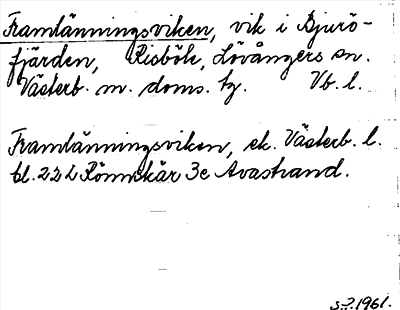 Framlänningsviken, vik i Bjurö-
fjärden, Risböle, Lövångers sn.
Västerb. m. doms. tg. Vb. l.
Framlänningsviken, ek. Västerb. l.
bl. 22 L Rönnskär 3e Avastrand.
1961.